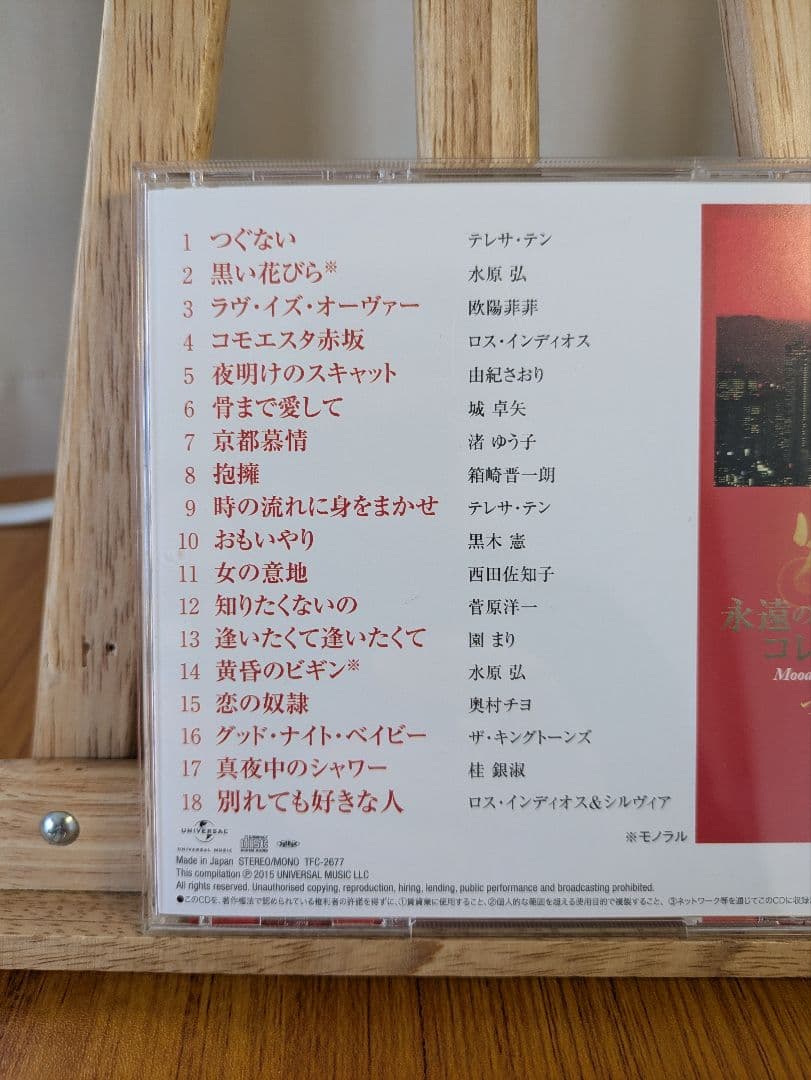 1 つぐない テレサ・テン
2 黒い花びら※ 水原 弘
3 ラヴ・イズ・オーヴァー 欧陽菲菲
4 コモエスタ赤坂 ロス・インディオス
5 夜明けのスキャット 由紀さおり
6 骨まで愛して 城 卓矢
7 京都慕情 渚 ゆう子
8 抱擁 箱崎晋一朗
9 時の流れに身をまかせ テレサ・テン
10 おもいやり 黒木 憲
11 女の意地 西田佐知子
12 知りたくないの 菅原洋一
13 逢いたくて逢いたくて 園 まり
14 黄昏のビギン※ 水原 弘
15 恋の奴隷 奥村チヨ
16 グッド・ナイト・ベイビー ザ・キングトーンズ
17 真夜中のシャワー 桂 銀淑
18 別れても好きな人 ロス・インディオス&シルヴィア
※モノラル
UNIVERSAL
UNIVERSAL MUSIC
Made in Japan STEREO/MONO TFC-2677
This compilation Ⓟ 2015 UNIVERSAL MUSIC LLC
All rights reserved. Unauthorised copying, reproduction, hiring, lending, public performance and broadcasting prohibited.
●このCDを、著作権法で認められている権利者の許諾を得ずに、①賃貸業に使用すること、②個人的な範囲を超える使用目的で複製すること、③ネットワーク等を通じてこのCDに収録
永遠の
コレ
Mood